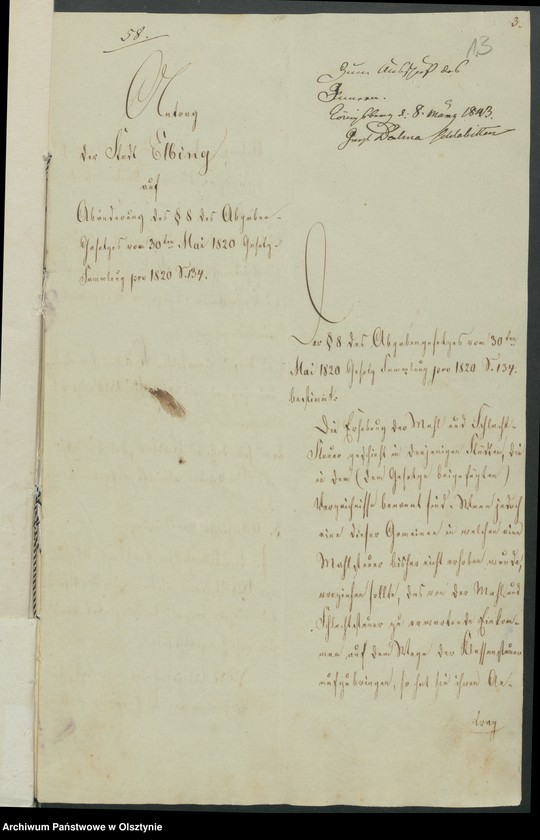 58.
3.
13
Zum Ausschuß des
Innern.
Königsberg d. 8. März 1843.
Graf Dohna
Antrag
der Stadt Elbing
auf
Abänderung des § 8 des Abgaben-
Gesetzes vom 30ten Mai 1820 Gesetz-
Sammlung pro 1820 S. 134.
Der § 8 des Abgabengesetzes vom 30ten
Mai 1820 Gesetz Sammlung pro 1820 S. 134.
bestimmt:
Die Erhebung der Mahl und Schlacht-
Steuer geschieht in denjenigen Städten, die
in dem (dem Gesetze beigefügten)
Verzeichnisse benannt sind. Wenn jedoch
eine dieser Gemeinen in welchen eine
Mahlsteuer bisher nicht erhoben wurde,
vorziehen sollte, das von der Mahl und
Schlachtsteuer zu erwartende Einkom-
men auf dem Wege der Klassensteuer
aufzubringen, so hat sie ihren An-
trag
Archiwum Państwowe w Olsztynie